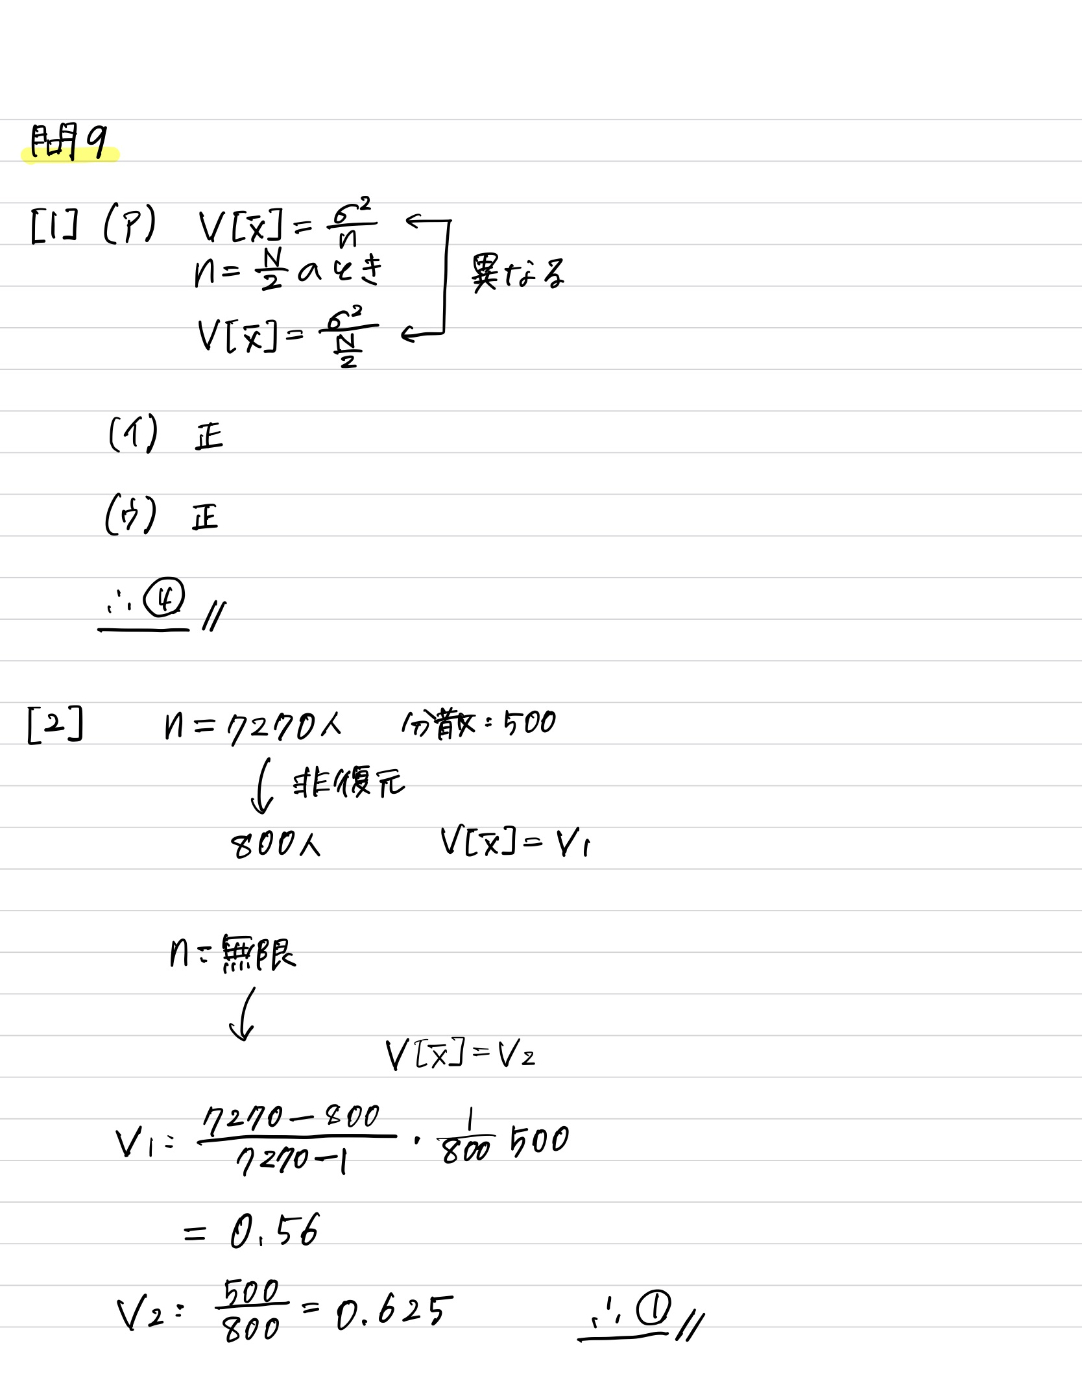 問9
[1] (ア) V[x̄] = σ²/n
n = N/2 のとき
異なる
V[x̄] = σ²/(N/2)
(イ) 正
(ウ) 正
∴ ④ //
[2] n = 7270人 分散: 500
↓ 非復元
800人 V[x̄] = V1
n = 無限
↓
V[x̄] = V2
V1 = (7270-800)/(7270-1) · 1/800 500
= 0.56
V2 = 500/800 = 0.625 ∴ ① //